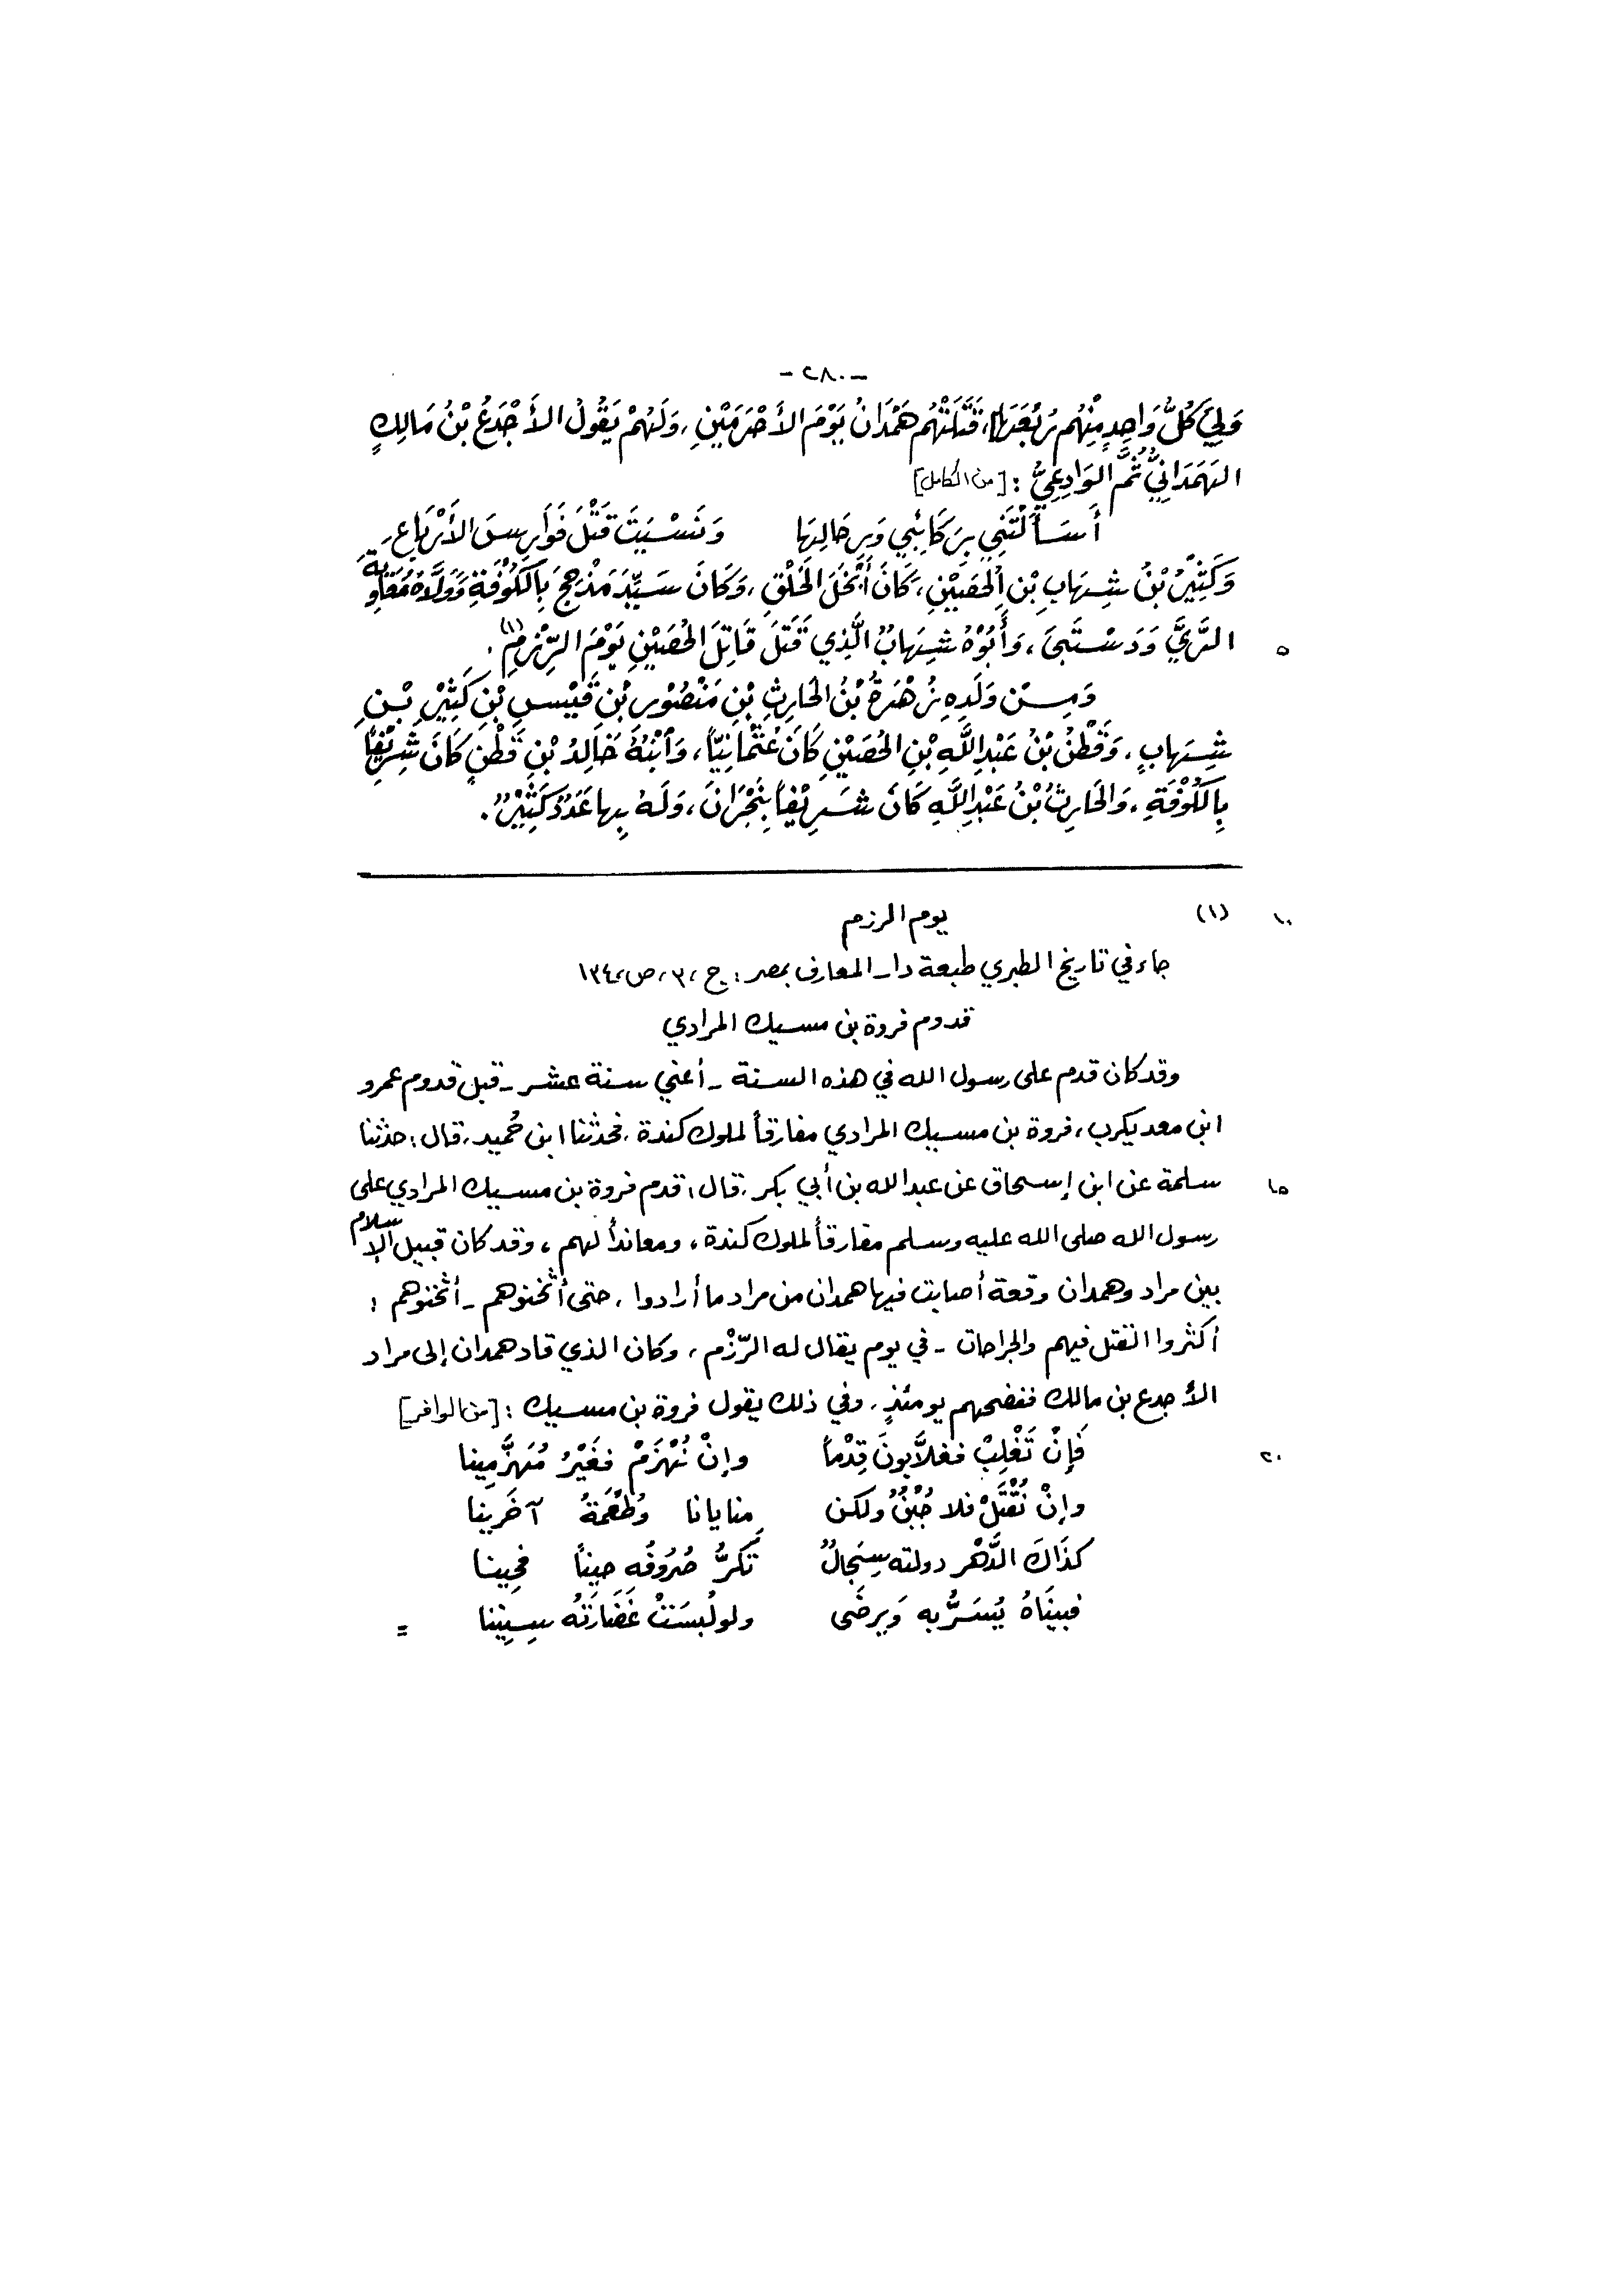 -٢٨٠-
وَلِيَ كُلُّ وَاحِدٍ مِنْهُم رُبْعَهَا، قَتَلَتْهُم هَمْدَانُ يَوْمَ الأَحْرَمَيْنِ، وَلَهُمْ يَقُولُ الأَجْدَعُ بْنُ مَالِكٍ
الهَمَدَانِيُّ ثُمَّ الوَادِعِيُّ : [من الكامل]
أَسَأَلْتَنِي بِرَكَائِبِي وَرِحَالِهَا وَنَسْيِتَ قَتْلَ فَوَارِسَ الأَرْبَاعِ
وَكَثِيْرُ بْنُ شِهَابِ بْنِ الحُصَيْنِ، كَانَ أَبْخَلَ الخَلْقِ، وَكَانَ سَيِّدَ مَذْحِجَ بِالكُوْفَةِ وَوَلَّاهُ مُعَاوِيَةُ
٥ الرَّيَّ وَدَسْتَبَى، وَأَبُوْهُ شِهَابُ الَّذِي قَتَلَ قَاتِلَ الحُصَيْنِ يَوْمَ الرِّزْمِ(١).
وَمِنْ وَلَدِهِ زُهْرَةُ بْنُ الحَارِثِ بْنِ مَنْصُوْرِ بْنِ قَيْسِ بْنِ كَثِيْرِ بْنِ
شِهَابٍ، وَقَطْنُ بْنُ عَبْدِ اللَّهِ بْنِ الحُصَيْنِ كَانَ عُثْمَانِيّاً، وَابْنُهُ خَالِدُ بْنِ قَطْنٍ كَانَ شَرِيْفاً
بِالكُوْفَةِ، وَالحَارِثُ بْنُ عَبْدِ اللَّهِ كَانَ شَرِيْفاً بِنَجْرَانَ، وَلَهُ بِها عَدَدٌ كَثِيْرٌ.
١٠ (١) يوم الرزم
جاء في تاريخ الطبري طبعة دار المعارف بمصر: ج، ٣، ص، ١٣٤
قدوم فروة بن مسيك المرادي
وقد كان قدم على رسول الله في هذه السنة - أعني سنة عشر - قبل قدوم عمرو
ابن معد يكرب، فروة بن مسيك المرادي مفارقاً لملوك كندة، فحدثنا ابن حُميد، قال: حدثنا
١٥ سلمة عن ابن إسحاق عن عبد الله بن أبي بكر، قال: قدم فروة بن مسيك المرادي على
رسول الله صلى الله عليه وسلم مفارقاً لملوك كندة، ومعانداً لهم، وقد كان قبيل الإسلام
بين مراد وهمدان وقعة أصابت فيها همدان من مراد ما أرادوا، حتى أثخنوهم - أثخنوهم :
أكثروا القتل فيهم والجراحات - في يوم يقال له الرّزْم، وكان الذي قاد همدان إلى مراد
الأجدع بن مالك ففضحهم يومئذٍ، وفي ذلك يقول فروة بن مسيك : [من الوافر]
٢٠ فَإِنْ تَغْلِبْ فغلاَّبونَ قِدْماً وإنْ نُهْزَمْ فغَيْرُ مُهَزَّمِينا
وإنْ نُقْتَلْ فلا جُبْنٌ ولكن منايانا وطُعْمَةُ آخَرِينا
كذَاكَ الدَّهْر دولته سِجَالٌ تَكرُّ صُرُوفُه حِيناً فحِينا
فبينَاهُ يُسَرُّ به وَيرضَى ولو لُبسَتْ غَضَارَتُه سِنِينا =